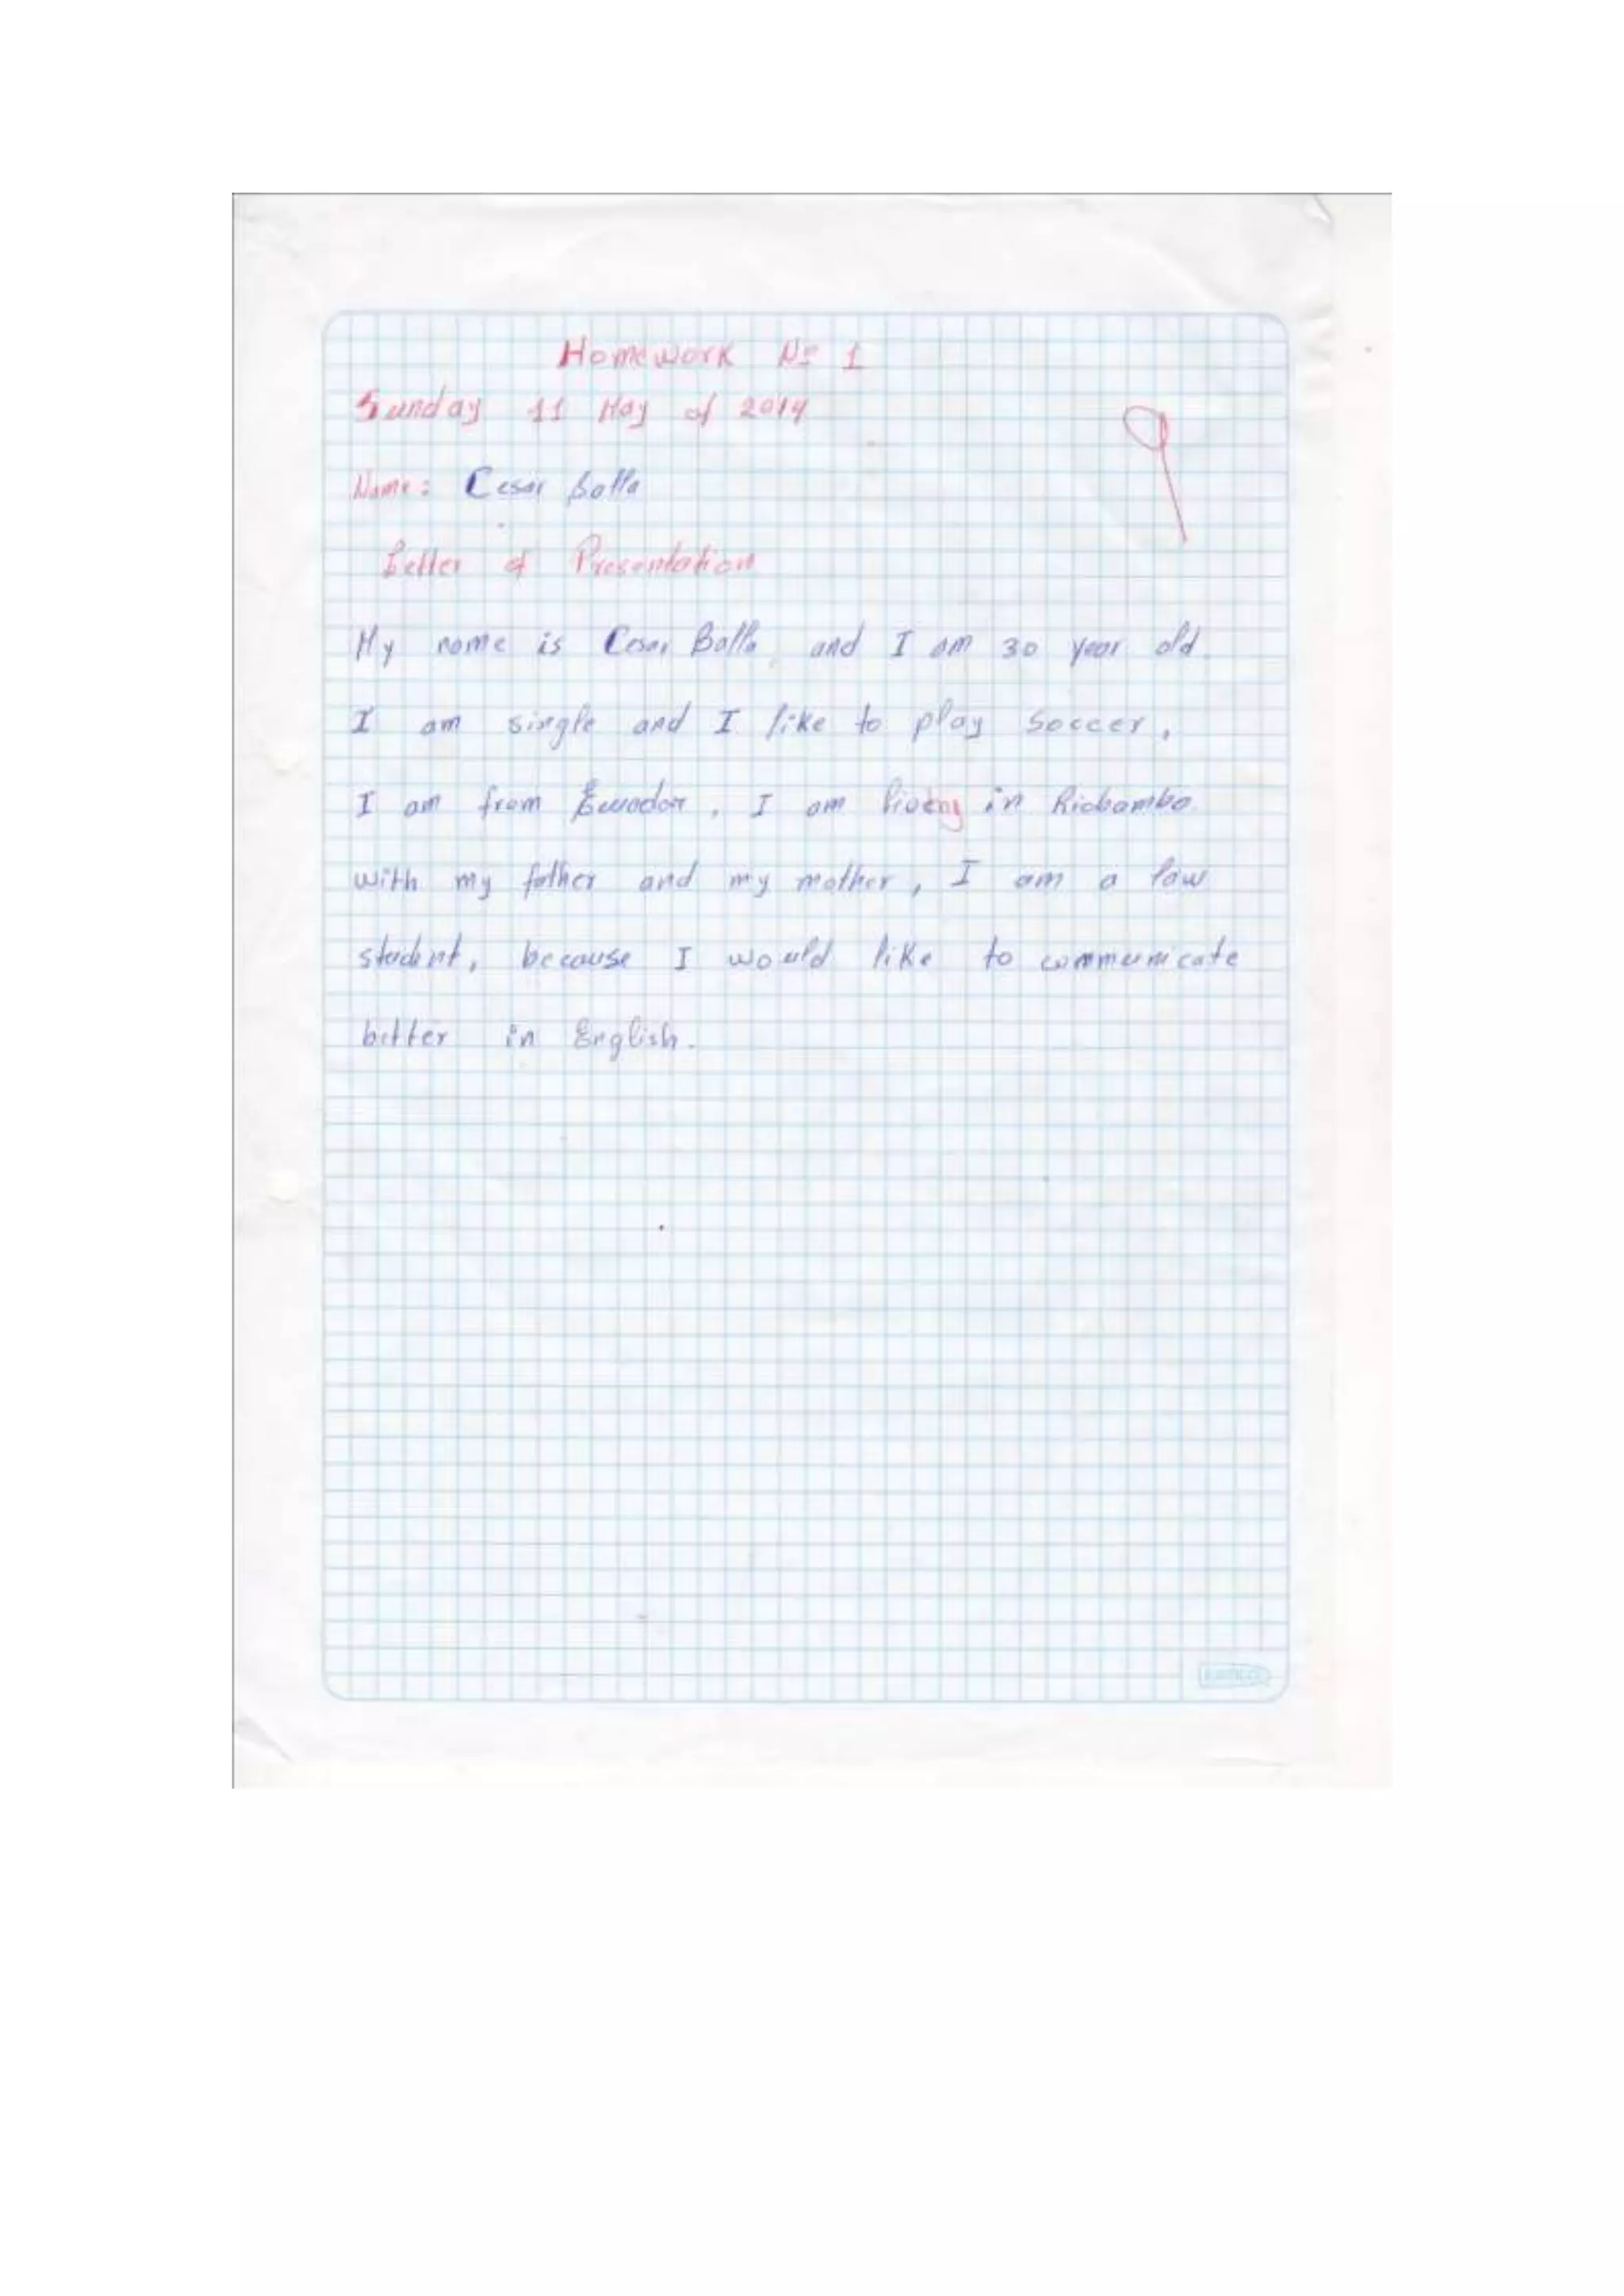 Homework Nº 1
Sunday 11 May of 2014
Name: Cesar Balla
Letter of Presentation
My name is Cesar Balla and I am 30 year old.
I am single and I like to play soccer.
I am from Ecuador. I am living in Riobamba
with my father and my mother, I am a law
student, because I would like to communicate
better in English.